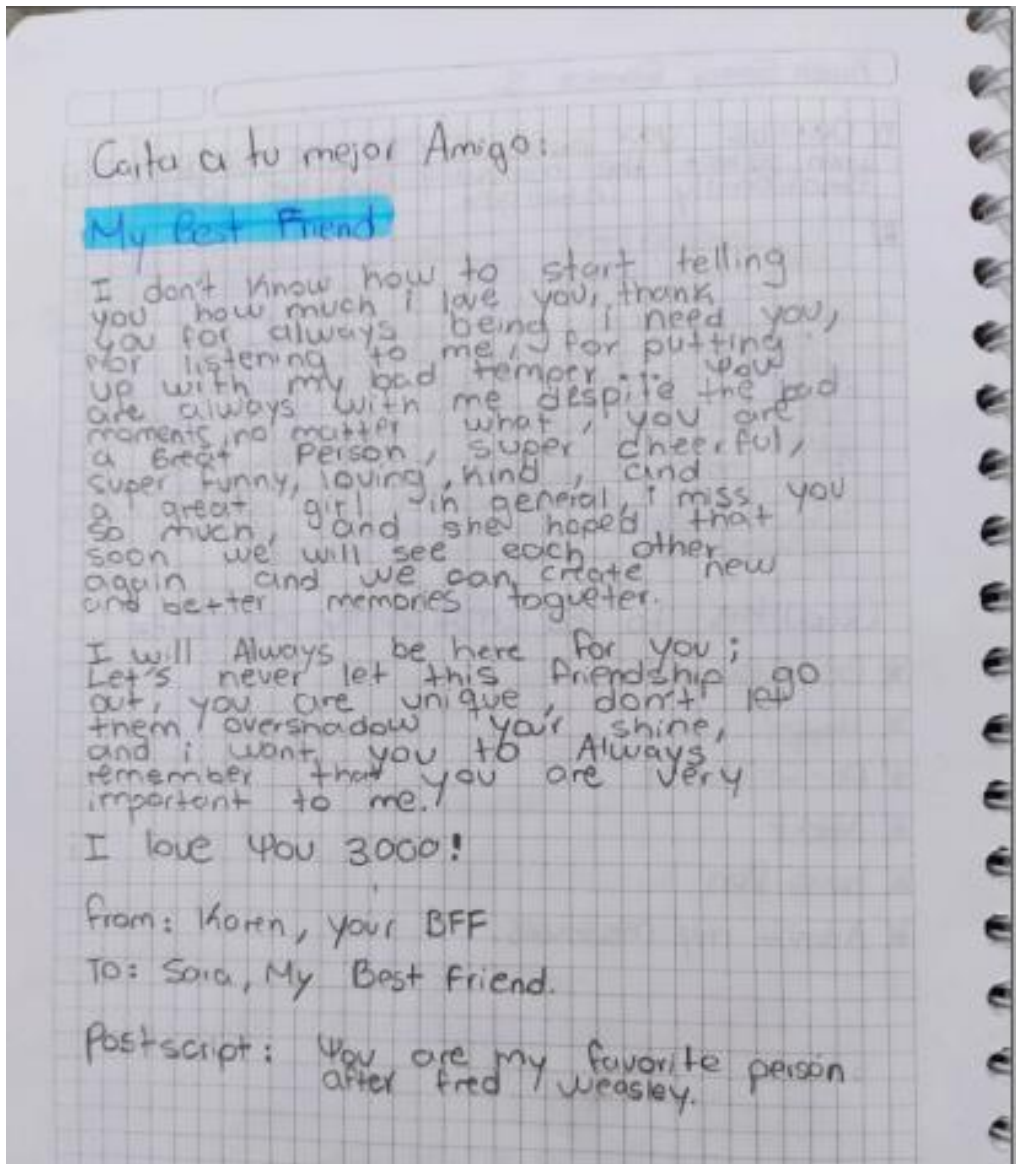 Carta a tu mejor Amigo:
My Best Friend
I don't know how to start telling
you how much i love you, thank
you for always being i need you,
for listening to me, for putting
up with my bad temper... you
are always with me despite the bad
moments, no matter what, you are
a Great person, super cheerful,
super funny, loving, kind, and
a great girl in general, i miss you
so much, and she hoped that
soon we will see each other
again and we can create new
and better memories togueter.
I will Always be here for you;
Let's never let this friendship go
out, you are unique, don't let
them overshadow your shine,
and i want you to Always
remember that you are very
important to me!
I love you 3000!
from: Karen, your BFF
To: Sara, My Best Friend.
Postscript: You are my favorite person
after fred weasley.